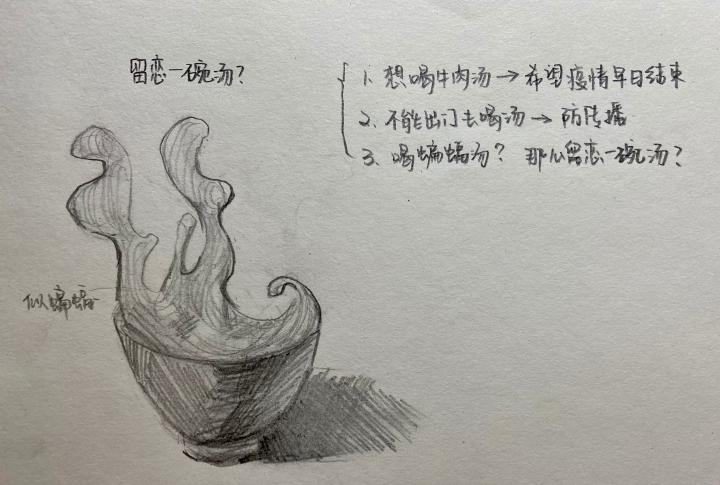 留恋一碗汤?
1. 想喝牛肉汤→希望疫情早日结束
2、不能出门去喝汤→防传播
3、喝蝙蝠汤? 那么留恋一碗汤?
似蝙蝠